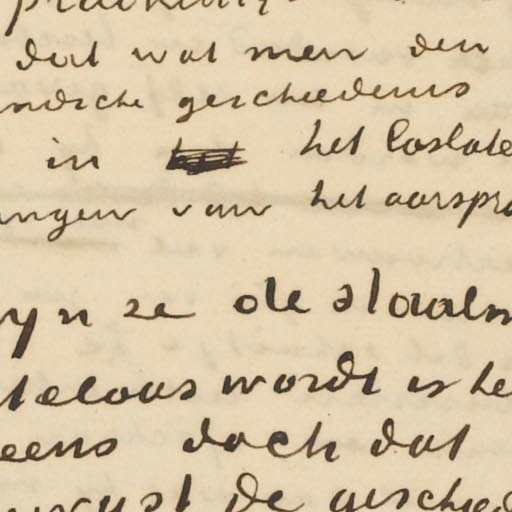 dat wat men den
ndsche geschiedenis
in het loslate
ingen van het oorspro
yn ze de staatm
teloos wordt is he
eens doch dat
juist de geschied